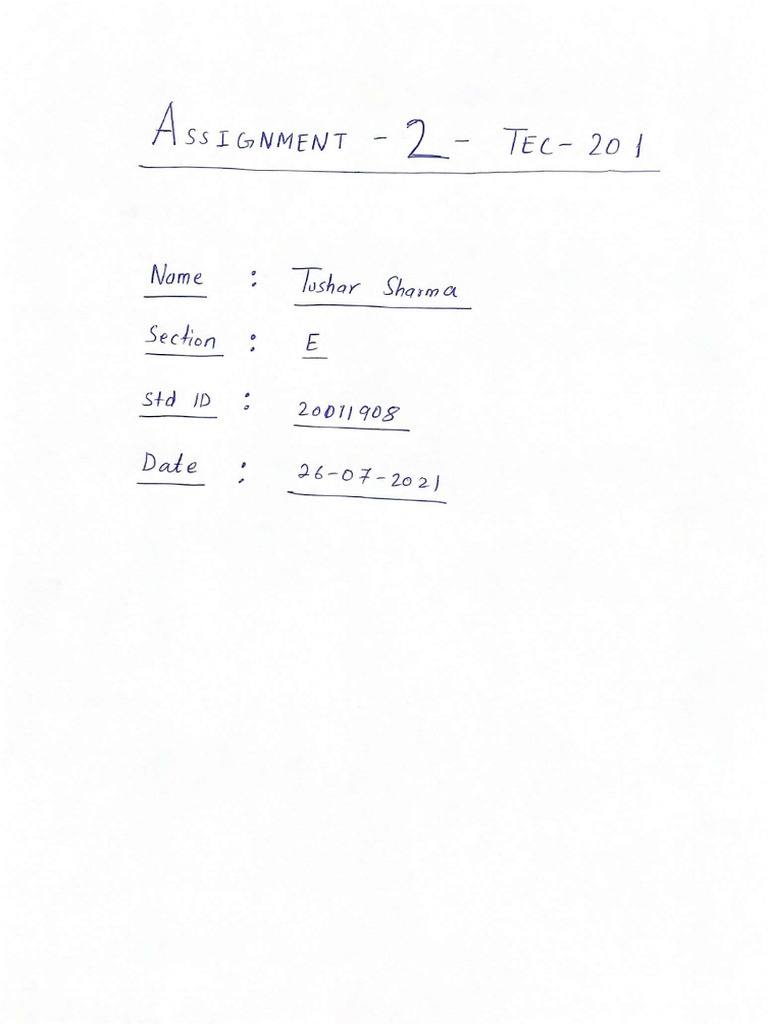 ASSIGNMENT - 2 - TEC- 201
Name : Tushar Sharma
Section : E
Std ID : 20011908
Date : 26-07-2021